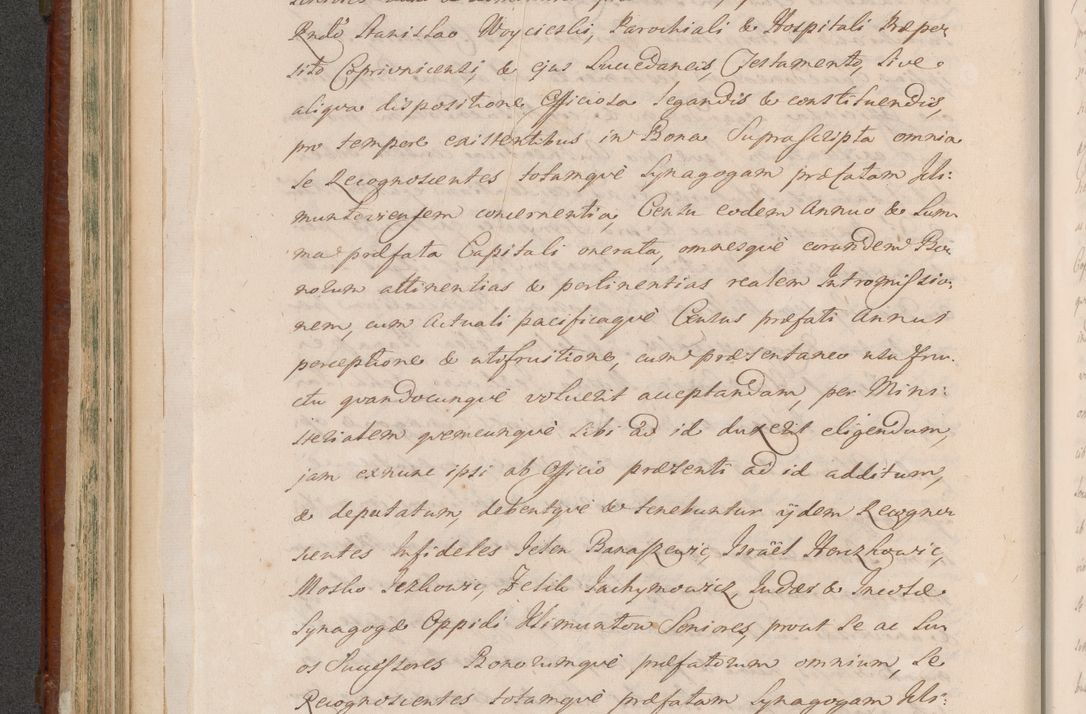 Rndo Stanislao Woycieski, Parochiali & Hospitali Præpo
sito Coprivnicensi, & ejus Succedaneis, Testamento, sive
aliqva dispositione Officiosa legandis & constituendis,
pro tempore existentibus in Bona Suprascripta omnia
se Recognoscentes totamqvè Synagogam præfatam Kli:
muntoviensem concernentia, Censu eodem Annuo & Sum
ma præfata Capitali onerata, omnesqvè eorundem Bo:
norum attinentias & pertinentias realem Intromissio:
nem, cum Actuali pacificaqvè Census præfati Annui
perceptione & utifruitione, cum præsentaneo usu fru:
ctu qvandocunqvè voluerit acceptandam, per Mini:
sterialem qvemcunqvè sibi ad id duxerit eligendum,
jam exnunc ipsi ab Officio præsenti ad id additum,
& deputatum, debentqvè & tenebuntur ijdem Recogno
scentes Infideles Jelen Banaszewic, Israël Herszkowic,
Mosko Jezkowic, Zelik Jachymowicz, Judæi & Incolæ
Synagogæ Oppidi Klimuntow Seniores, prout se ac Su
os Successores Bonorumqvè præfatorum omnium, se
Recognoscentes totamqvè præfatam Synagogam Kli: